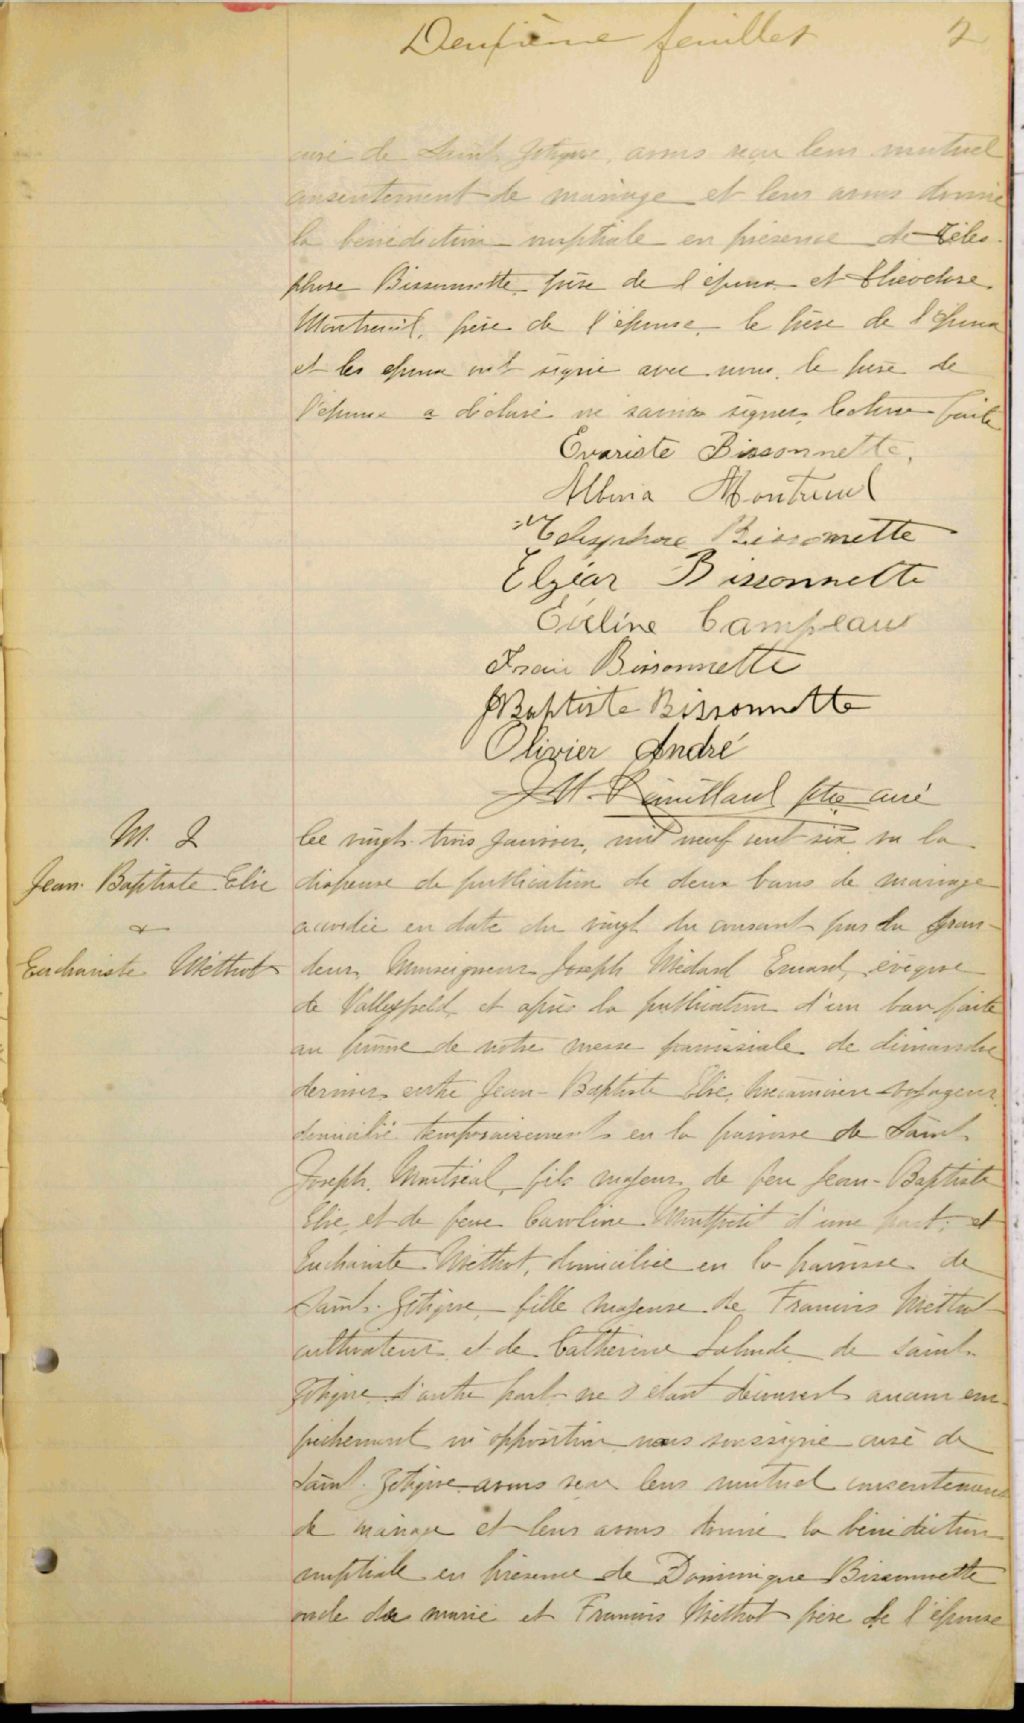 Deuxième feuillet 2
curé de Saint Zotique, avons reçu leur mutuel
consentement de mariage et leur avons donné
la bénédiction nuptiale en présence de Téles-
phore Bissonnette père de l'époux et Théodore
Montreuil, père de l'épouse, le père de l'époux
et les époux ont signé avec nous, le père de
l'épouse a déclaré ne savoir signer, lecture faite
Evariste Bissonnette.
Albina Montreuil
Telesphore Bissonnette
Elzéar Bissonnette
Eveline Campeau
Bissonnette
JBaptiste Bissonnette
Olivier André
ptre curé
M. 2
Jean-Baptiste Elie
&
Euchariste Methot
Le vingt-trois janvier, mil neuf cent six, vu la
dispense de publication de deux bans de mariage
accordée en date du vingt du courant par Sa Gran-
deur Monseigneur Joseph Médard Emard, évêque
de Valleyfield, et après la publication d'un ban faite
au prône de notre messe paroissiale de dimanche
dernier entre Jean-Baptiste Elie, voyageur,
domicilié temporairement en la paroisse de Saint
Joseph, Montréal, fils majeur de feu Jean-Baptiste
Elie, et de feue Caroline Montpetit d'une part, et
Euchariste Methot, domiciliée en la paroisse de
Saint-Zotique, fille majeure de Francois Methot
cultivateur et de Catherine Lalonde de Saint-
Zotique d'autre part ne s'étant découvert aucun em-
pêchement ni opposition nous soussigné curé de
Saint-Zotique avons reçu leur mutuel consentement
de mariage et leur avons donné la bénédiction
nuptiale en présence de Dominique Bissonnette
oncle du marié et Francois Methot père de l'épouse